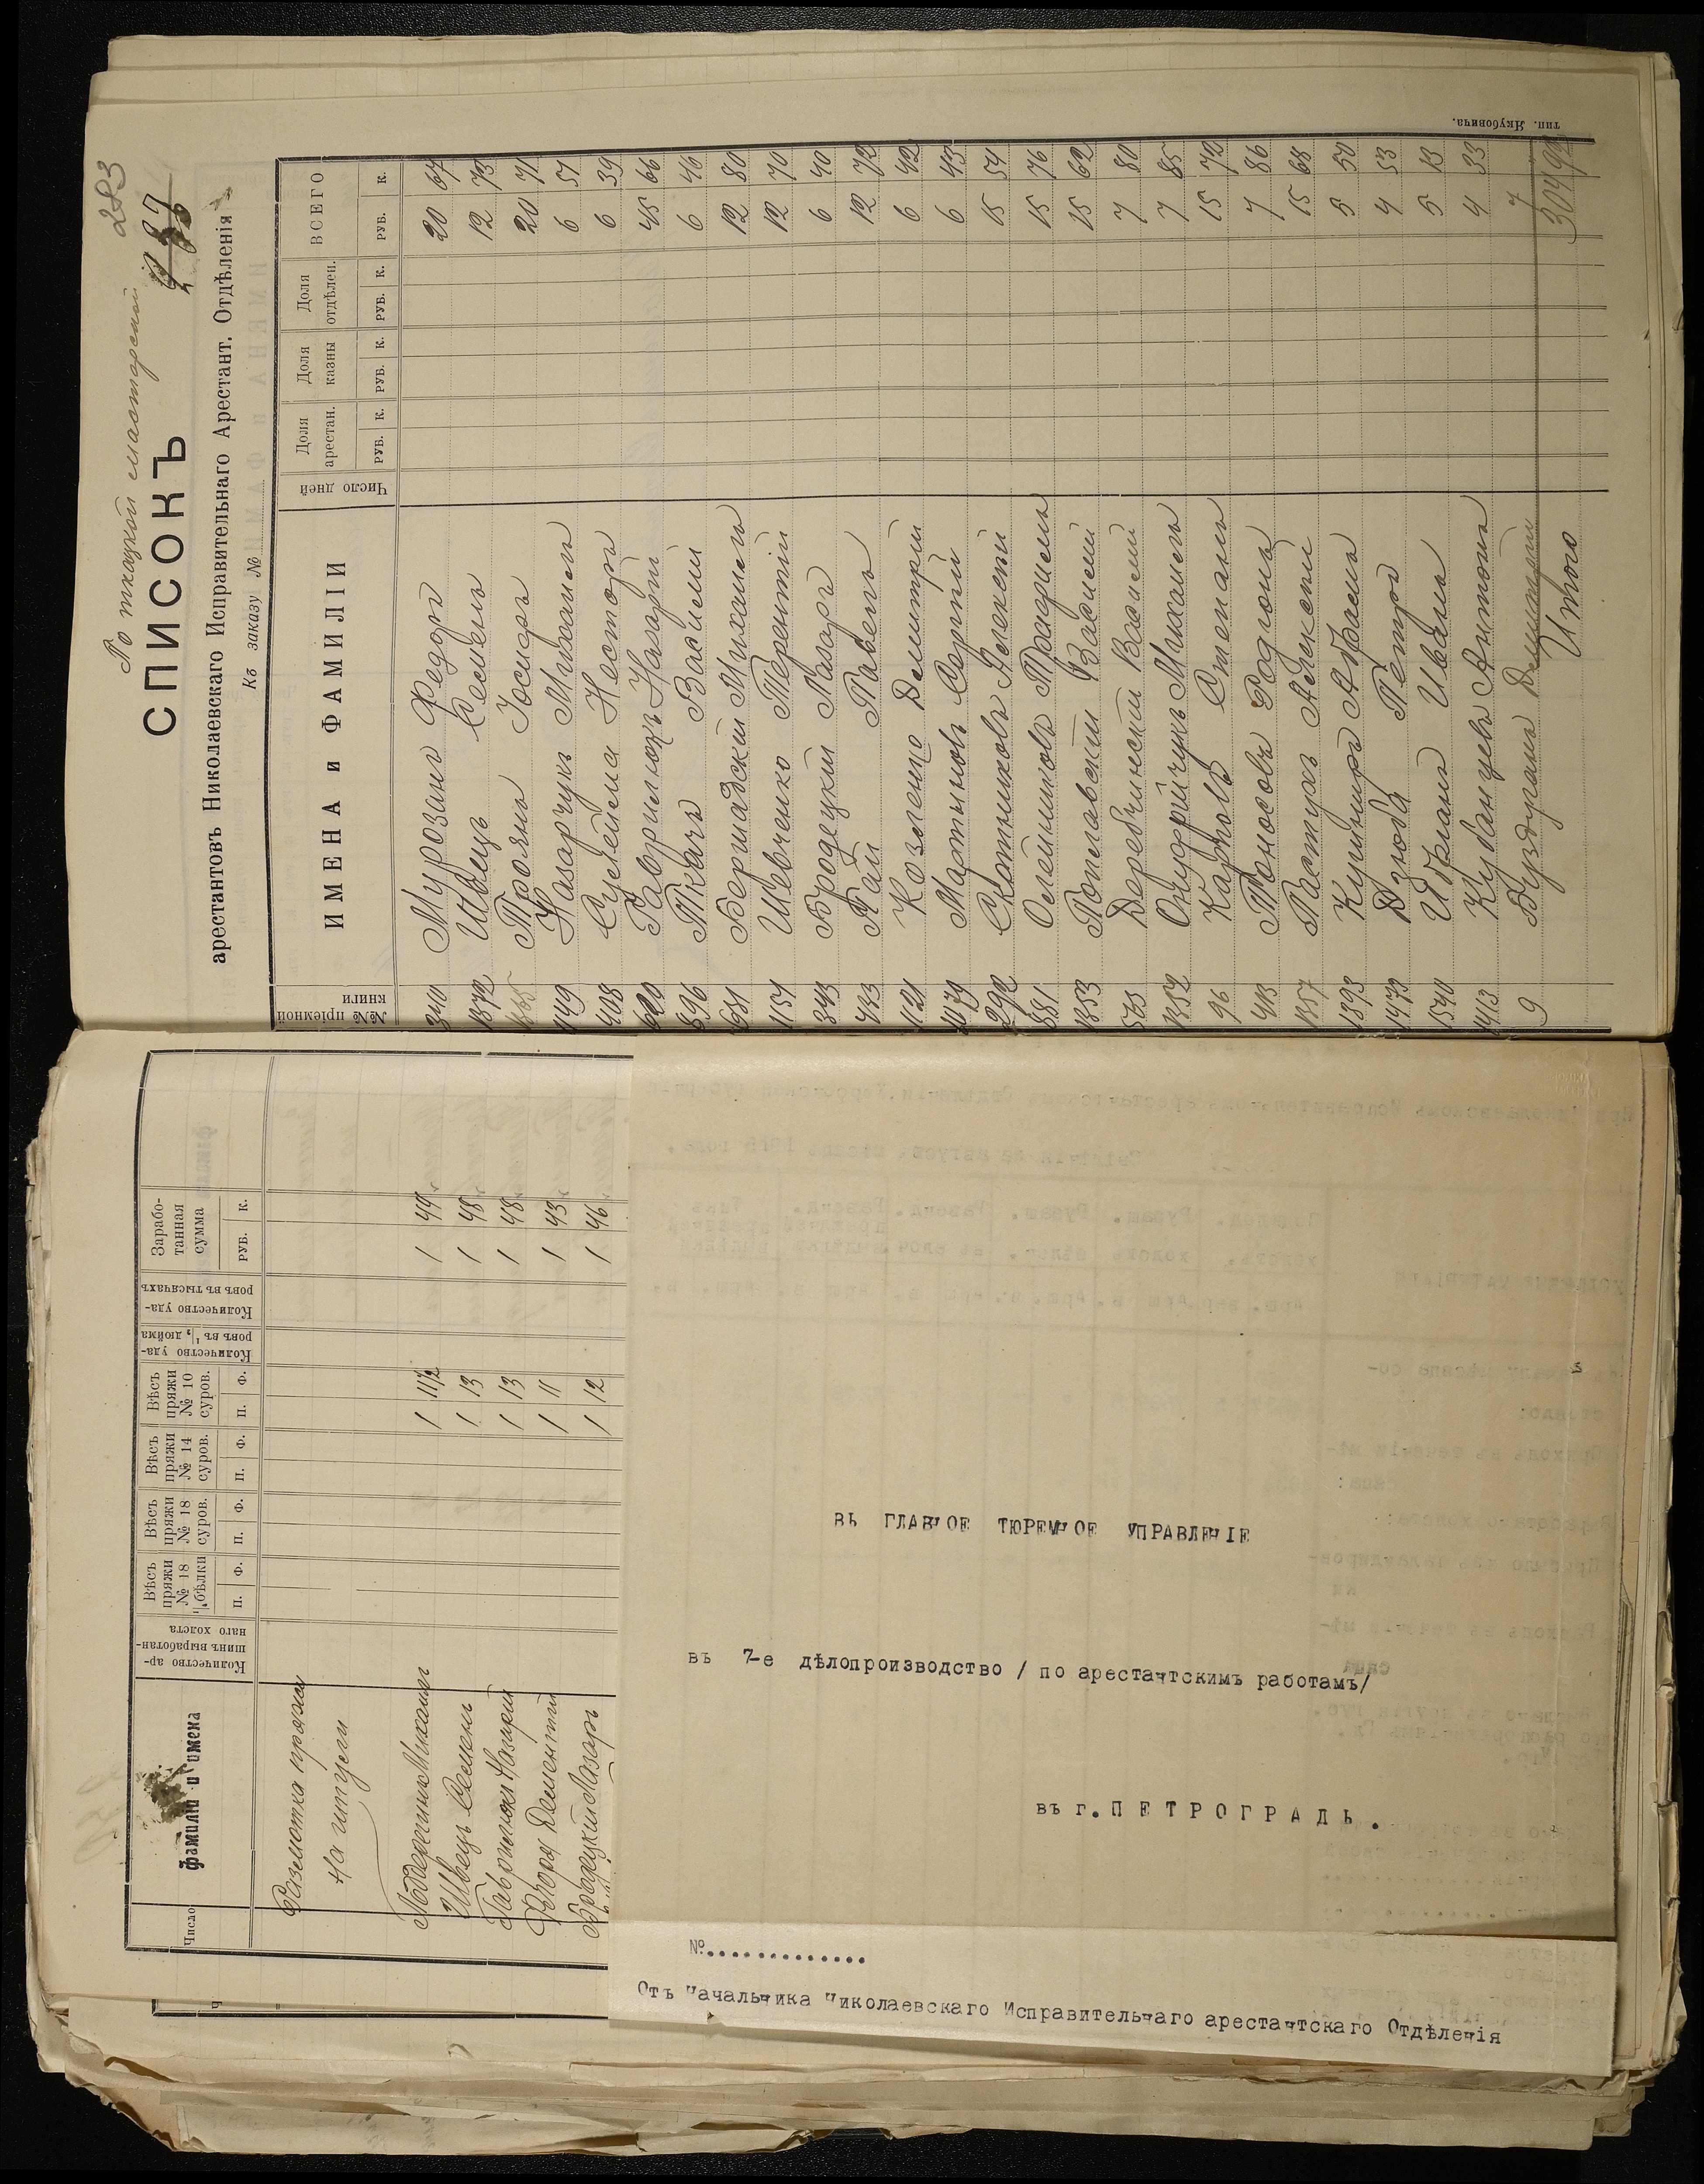 283
По ткацкой мастерской
СПИСОКЪ
арестантовъ Николаевскаго Исправительнаго Арестант. Отдѣленія
Къ заказу №
№№ пріемной книги | ИМЕНА и ФАМИЛІИ | Число дней | Доля арестан. | Доля казны | Доля отдѣлен. | ВСЕГО
РУБ. К. РУБ. К. РУБ. К. РУБ. К.
340 Мурозанъ Федоръ 20 67
1872 Швецъ Семенъ 12 73
Троянъ Іосифъ 20 71
1149 Назарчукъ Михаилъ 6 51
408 Сулейма Несторъ 6 39
620 Гаврилюкъ Назарій 45 66
896 Ткачъ Василій 6 46
681 Бернадскій Михаилъ 12 80
1154 Шевченко Терентій 12 70
343 Бродецкій Лазарь 6 40
433 Павелъ 12 72
1121 Козленко Дмитрій 6 42
1079 Мартыновъ Сергій 6 43
292 Скотниковъ Алексѣй 15 54
881 Олейниковъ 15 76
1353 Василій 15 62
565 Деребчинскій Василій 7 80
1352 Онуфрійчукъ Михаилъ 7 85
96 Карповъ Степанъ 15 72
413 Тоносовъ Родіонъ 7 86
1357 Пастухъ Алексѣй 15 68
1393 Кушниръ 5 50
1473 Дзюба Петръ 4 53
1540 Иванъ 5 13
1413 Кубанцевъ Антонъ 4 33
9 Буздуганъ Дмитрій 7
Итого 304 92
тип. Якубовича.
Число | фамиліи и имена | Количество аршинъ выработаннаго холста | Вѣсъ пряжи № 18 ½ бѣлки | Вѣсъ пряжи № 18 суров. | Вѣсъ пряжи № 14 суров. | Вѣсъ пряжи № 10 суров. | Количество ударовъ въ ½ дюйма | Количество ударовъ въ тысячахъ | Заработанная сумма
П. Ф. П. Ф. П. Ф. П. Ф. РУБ. К.
Размотка пряжи
на шпули
Михаилъ 1 11½ 1 44
Швецъ Семенъ 1 13 1 48
Гаврилюкъ Назарій 1 13 1 48
Дементій 1 11 1 43
Бродецкій Лазарь 1 12 1 46
ВЪ ГЛАВНОЕ ТЮРЕМНОЕ УПРАВЛЕНІЕ
въ 7-е дѣлопроизводство / по арестантскимъ работамъ/
въ г. ПЕТРОГРАДЬ.
№.............
Отъ Начальника Николаевскаго Исправительнаго арестантскаго Отдѣленія